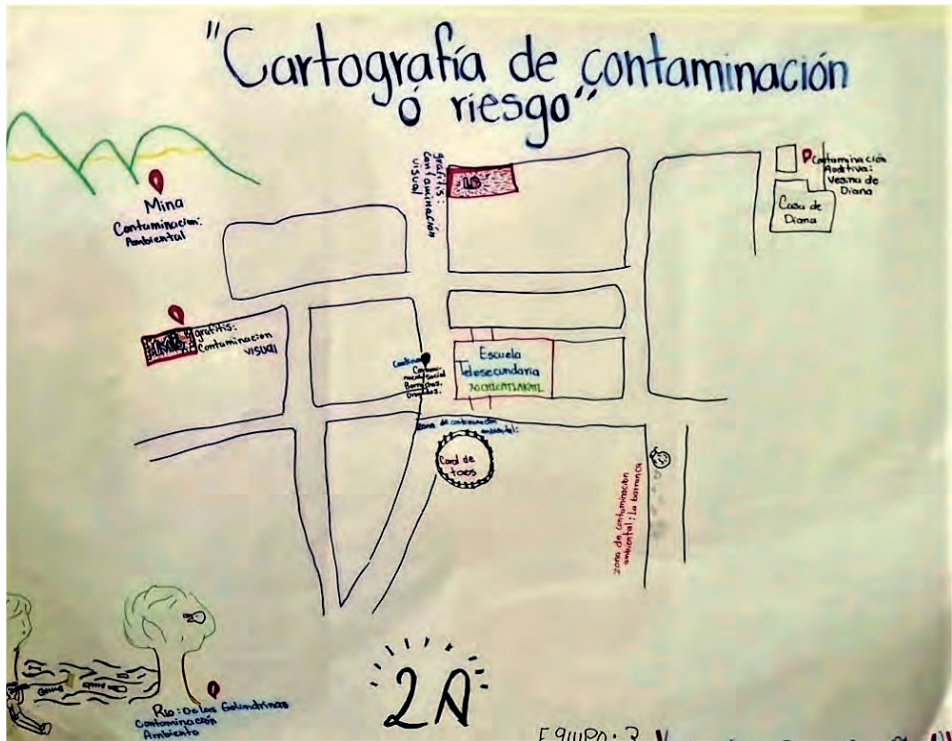 "Cartografía de contaminación
ó riesgo"
Mina
Contaminacion:
Ambiental
grafitis:
contaminación
visual
Contaminación
Auditiva:
Vesina de
Diana
Casa de
Diana
grafitis:
Contaminacion
visual
Cantina
social
Borrachos.
Escuela
Telesecundaria
XOCHICATLAKATL
Zona de contaminación
ambiental:
Coral de
toros
zona de contaminacion
ambiental: La barranca
Rio: De las Golondrinas
Contaminación
Ambiento
2A
EQUIPO: 3